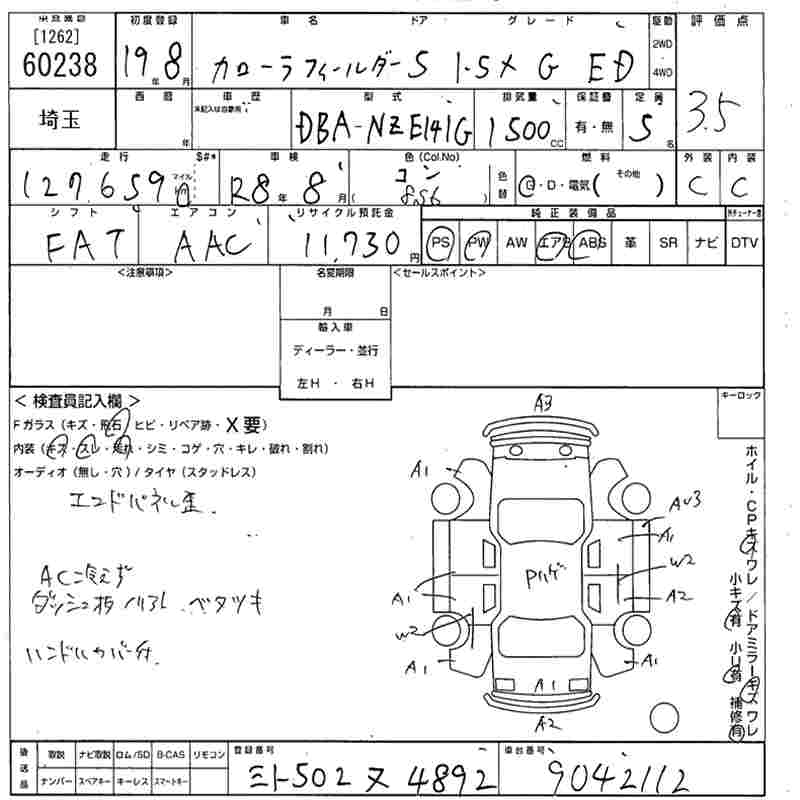 [1262]
60238
埼玉
初度登録
19年 8月
西暦
年
車名 ドア グレード
カローラフィールダー 5 1.5X G ED
駆動
2WD
4WD
評価点
3.5
車歴
型式
DBA-NZE141G
排気量
1500CC
保証書
有・無
定員
5名
走行
127,659
マイル
km
S#*
車検
R8年 8月
色(Col.No)
コン
8S6
色替
燃料
G・D・電気( その他 )
外装
C
内装
C
シフト
FAT
エアコン
AAC
リサイクル預託金
11,730円
純正装備品
PS PW AW エアB ABS 革 SR ナビ DTV
<注意事項>
名変期限
月 日
輸入車
ディーラー・並行
左H ・ 右H
<セールスポイント>
キーロック
<検査員記入欄>
Fガラス(キズ・飛石・ヒビ・リペア跡・X要)
内装(キズ・スレ・荒れ・シミ・コゲ・穴・キレ・破れ・割れ)
オーディオ(無し・穴)/タイヤ(スタッドレス)
エンドパネル歪
AC冷えず
ダッシュ板 ベタツキ
ハンドルカバー付
A3
A1
AU3
A1
W2
Pハゲ
A1
A2
W2
A1
A1
A1
A2
ホイル・CPキズワレ/ドアミラーキズワレ
小キズ有 小U有 補修有
後送品
取説 ナビ取説 ロム/SD B-CAS リモコン
ナンバー スペアキー キーレス スマートキー
登録番号
ミト502 ヌ 4892
車台番号
9042112